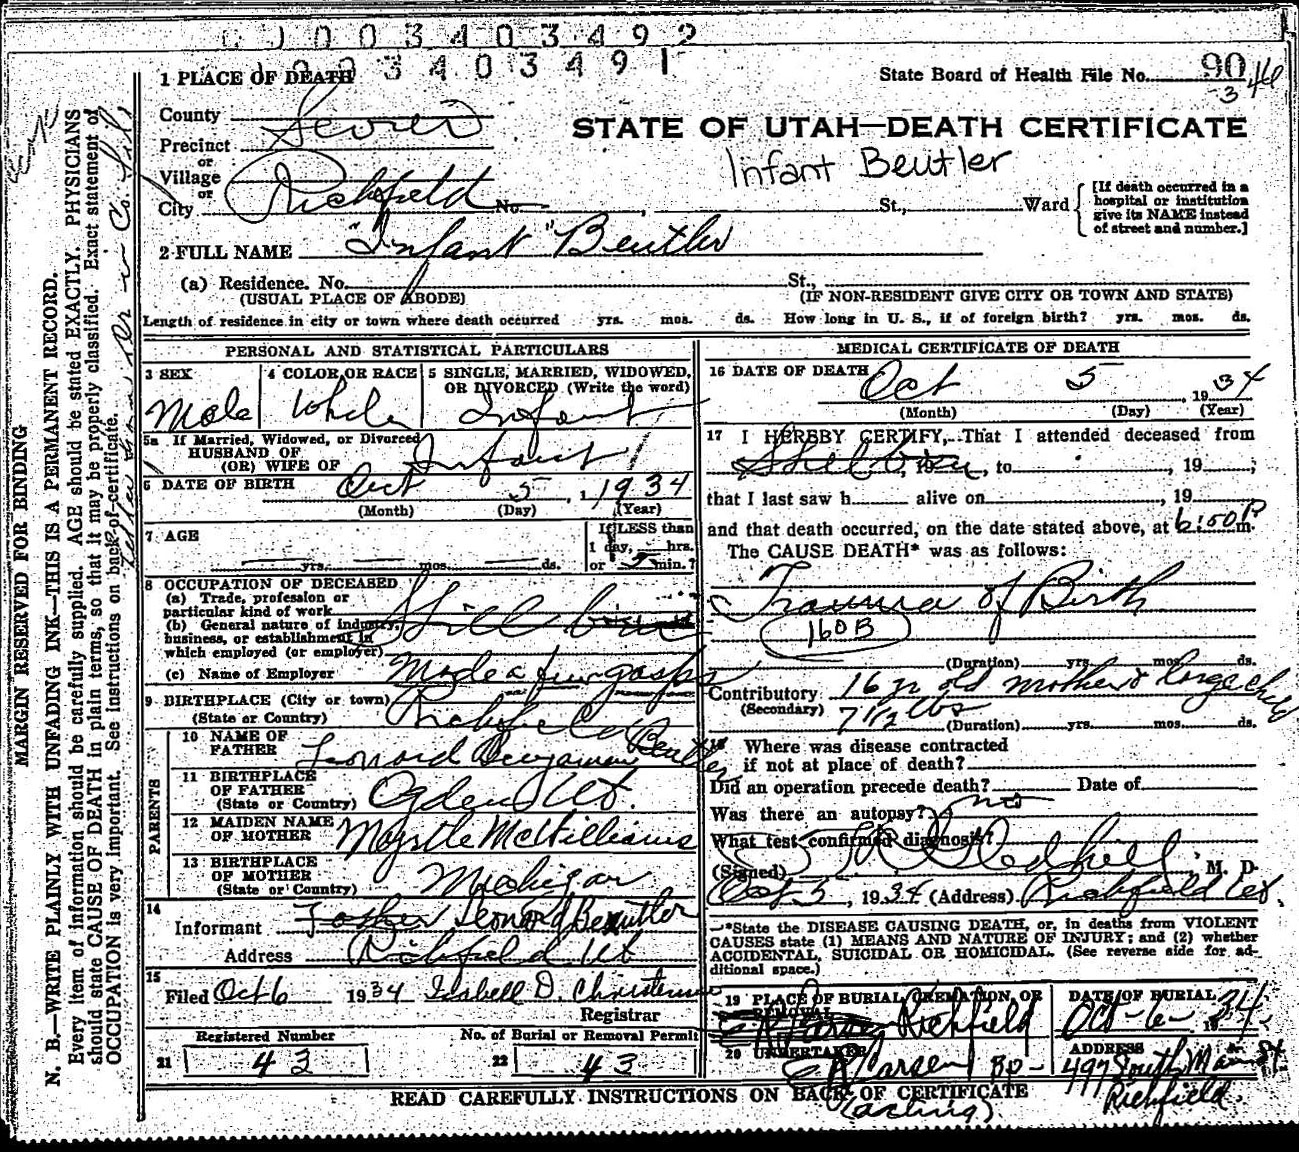 0 0 0 3 4 0 3 4 9 2
0 0 3 4 0 3 4 9 1
1 PLACE OF DEATH
State Board of Health File No. 90
3 46
County Sevier
Precinct
or
Village
or
City Richfield No. , St., Ward
STATE OF UTAH—DEATH CERTIFICATE
Infant Beutler
[If death occurred in a
hospital or institution
give its NAME instead
of street and number.]
2 FULL NAME "Infant" Beutler
(a) Residence. No. St.,
(USUAL PLACE OF ABODE) (IF NON-RESIDENT GIVE CITY OR TOWN AND STATE)
Length of residence in city or town where death occurred yrs. mos. ds. How long in U. S., if of foreign birth? yrs. mos. ds.
PERSONAL AND STATISTICAL PARTICULARS
3 SEX
Male
4 COLOR OR RACE
White
5 SINGLE, MARRIED, WIDOWED,
OR DIVORCED (Write the word)
Infant
5a If Married, Widowed, or Divorced
HUSBAND OF
(OR) WIFE OF Infant
6 DATE OF BIRTH Oct 5, 1934
(Month) (Day) (Year)
7 AGE
yrs. mos. ds.
If LESS than
1 day, hrs.
or 5 min.?
8 OCCUPATION OF DECEASED
(a) Trade, profession or
particular kind of work
(b) General nature of industry,
business, or establishment in
which employed (or employer)
Still born
(c) Name of Employer Made a few gasps
9 BIRTHPLACE (City or town)
(State or Country) Richfield
PARENTS
10 NAME OF
FATHER Leonard Benjamin Beutler
11 BIRTHPLACE
OF FATHER
(State or Country) Ogden Ut.
12 MAIDEN NAME
OF MOTHER Myrtle McWilliams
13 BIRTHPLACE
OF MOTHER
(State or Country) Michigan
14
Informant Father Leonard Beutler
Address Richfield Ut
15
Filed Oct 6 1934 Isabell D. Christensen
Registrar
Registered Number
21 43
No. of Burial or Removal Permit
22 43
MEDICAL CERTIFICATE OF DEATH
16 DATE OF DEATH Oct 5, 1934
(Month) (Day) (Year)
17 I HEREBY CERTIFY, That I attended deceased from
, 19 , to , 19 ;
that I last saw h alive on , 19
and that death occurred, on the date stated above, at 6:50 P m.
The CAUSE DEATH* was as follows:
Trauma of Birth
160B
(Duration) yrs. mos. ds.
Contributory 16 yr old mother & large child
(Secondary) 7 1/2 lbs
(Duration) yrs. mos. ds.
18 Where was disease contracted
if not at place of death?
Did an operation precede death? Date of
Was there an autopsy? no
What test confirmed diagnosis?
(Signed) Gledhill, M. D.
Oct 5, 1934 (Address) Richfield Ut.
*State the DISEASE CAUSING DEATH, or, in deaths from VIOLENT
CAUSES state (1) MEANS AND NATURE OF INJURY; and (2) whether
ACCIDENTAL, SUICIDAL OR HOMICIDAL. (See reverse side for ad-
ditional space.)
19 PLACE OF BURIAL, CREMATION, OR
REMOVAL
Richfield
DATE OF BURIAL
Oct-6- 1934
20 UNDERTAKER
Larsen
(acting)
ADDRESS
497 South Main St
Richfield.
READ CAREFULLY INSTRUCTIONS ON BACK OF CERTIFICATE
MARGIN RESERVED FOR BINDING
N. B.—WRITE PLAINLY WITH UNFADING INK—THIS IS A PERMANENT RECORD.
Every item of information should be carefully supplied. AGE should be stated EXACTLY. PHYSICIANS
should state CAUSE OF DEATH in plain terms, so that it may be properly classified. Exact statement of
OCCUPATION is very important. See instructions on back of certificate.